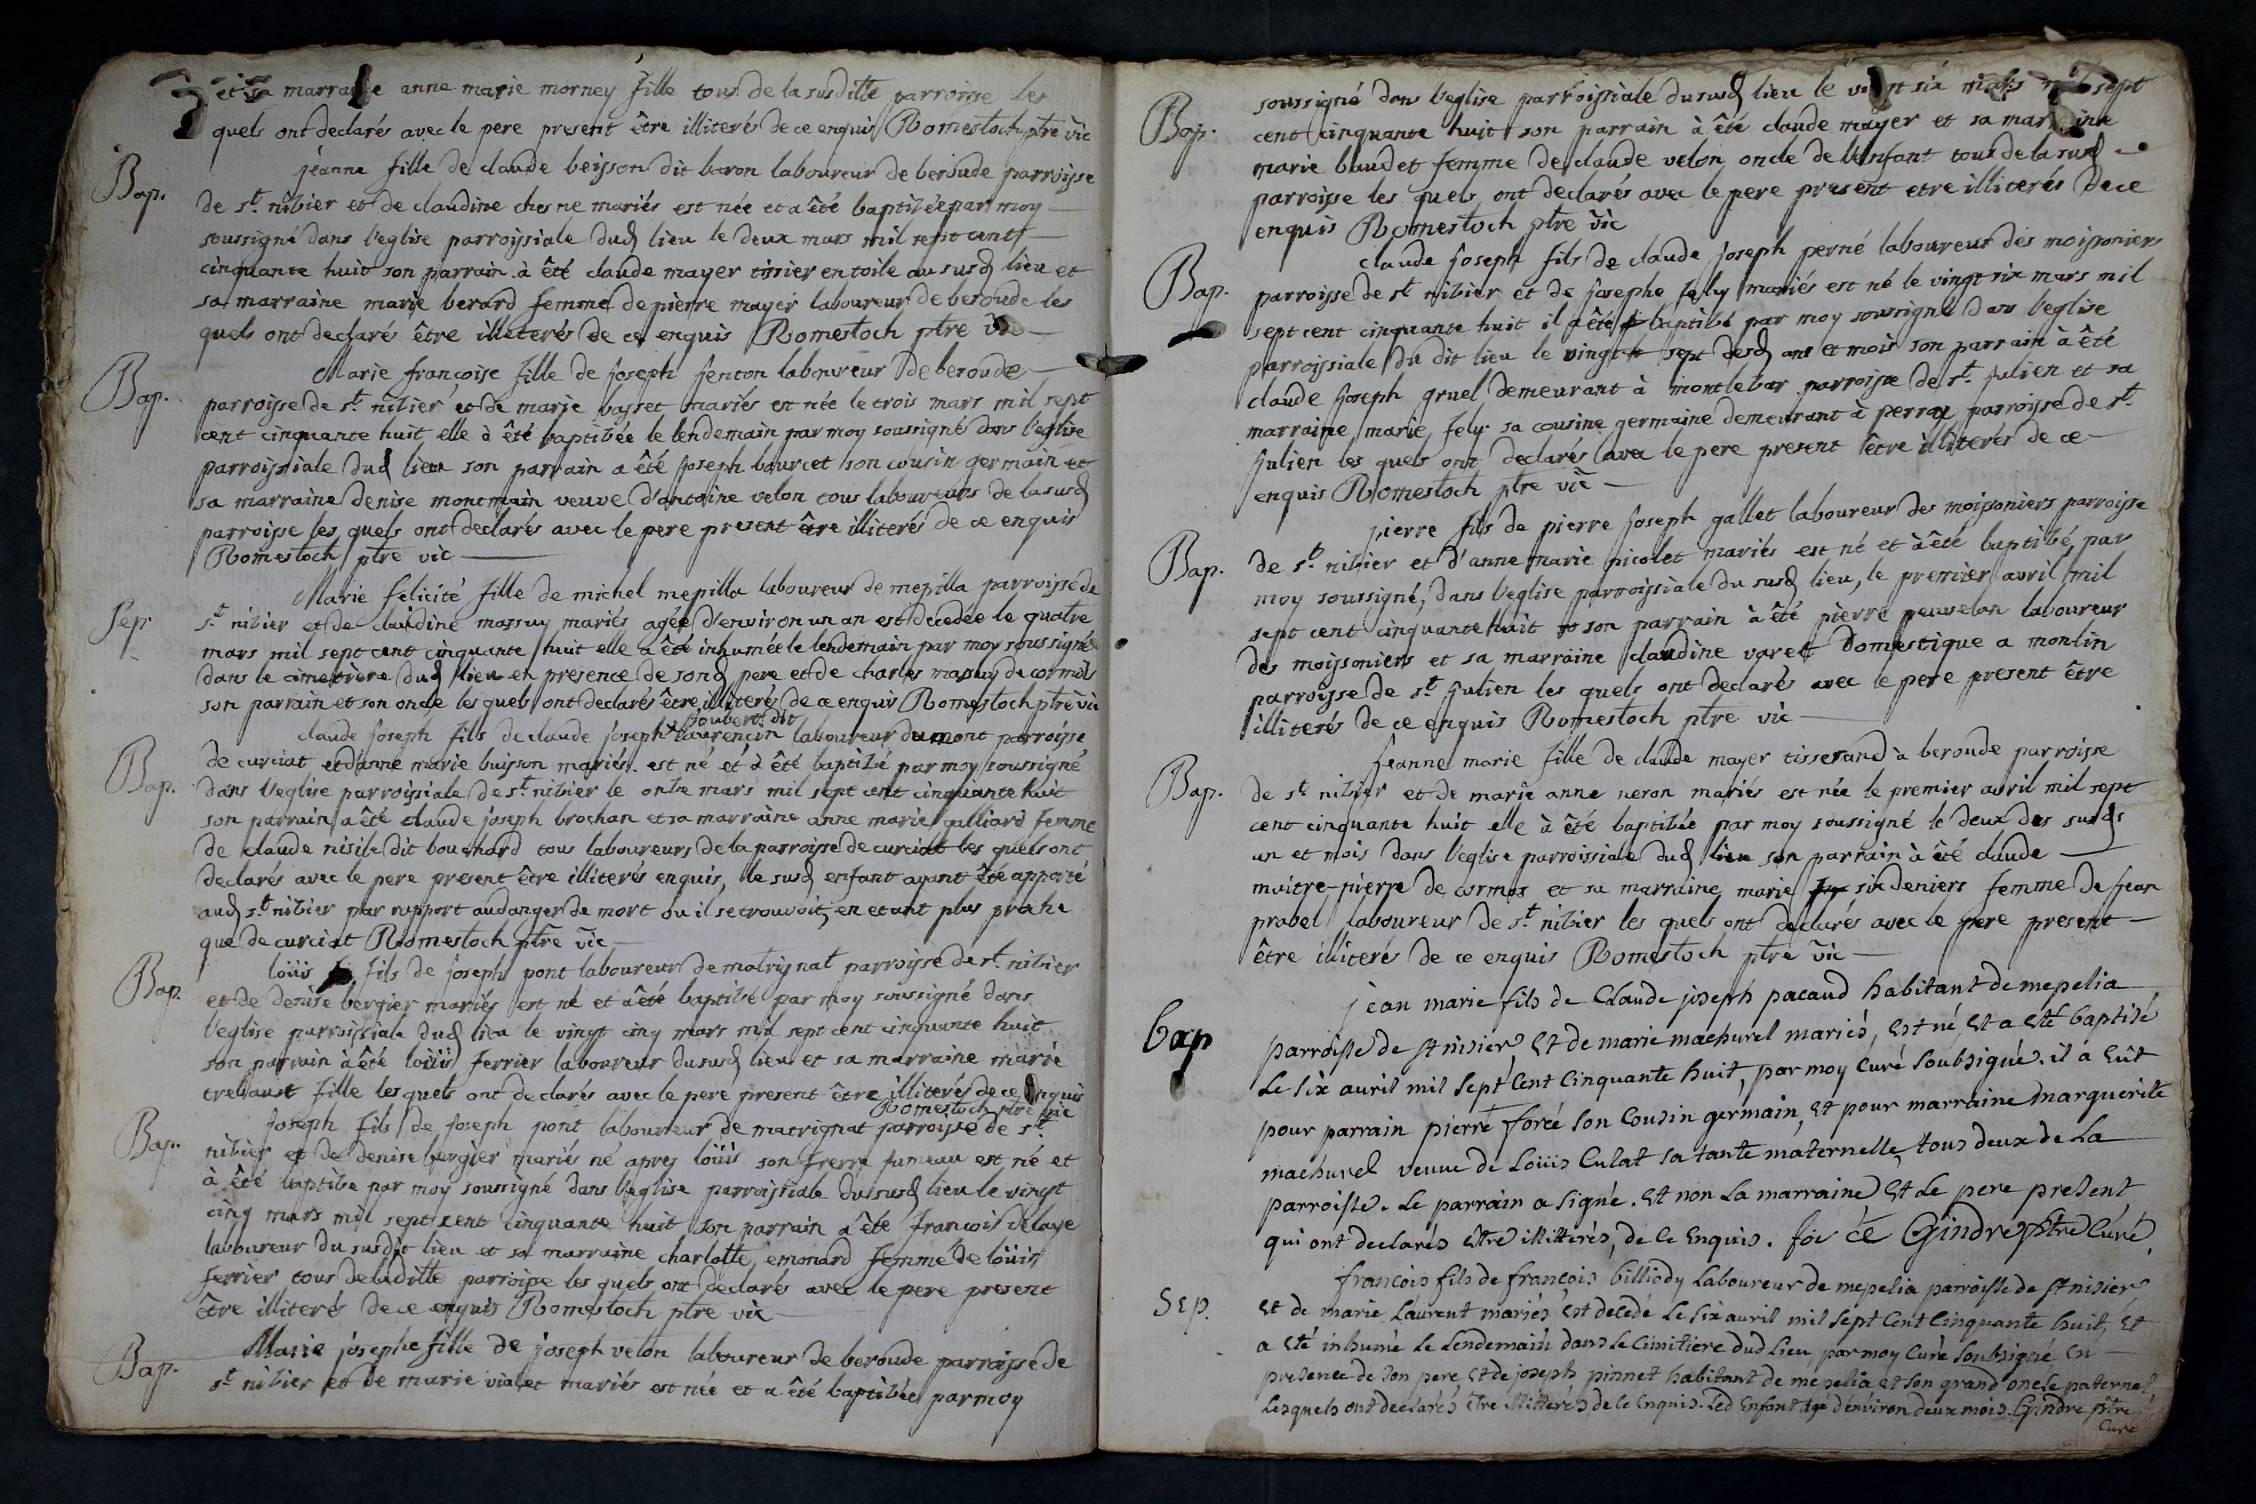 et sa marraine anne marie morney fille tous de la susditte parroisse les
quels ont declarés avec le pere present être illiterés de ce enquis Romestoch ptre vic
Bap.
jeanne fille de claude beisson dit baron laboureur de beroude parroisse
de st. nibier et de claudine chesne mariés est née et a été baptibée par moy
soussigné dans l'eglise parroissiale dud lieu le deux mars mil sept cent
cinquante huit son parrain à été claude mayer tissier en toile au susd lieu et
sa marraine marie berard femme de pierre mayer laboureur de beroude les
quels ont declaré être illiterés de ce enquis Romestoch ptre vic
Bap.
Marie françoise fille de joseph fenton laboureur de beroude
parroisse de st. nibier et de marie basset mariés est née le trois mars mil sept
cent cinquante huit elle à été baptibée le lendemain par moy soussigné dans l'eglise
parroissiale dud lieu son parrain a été joseph bourcet son cousin germain et
sa marraine denise montmain veuve d'antoine velon tous laboureurs de la susd
parroisse les quels ont declarés avec le pere present être illiterés de ce enquis
Romestoch ptre vic
Sep.
Marie felicité fille de michel mepilla laboureur de mepilla parroisse de
st. nibier et de claudine massuy mariés agée d'environ un an est decedée le quatre
mars mil sept cent cinquante huit elle a été inhumée le lendemain par moy soussigné
dans le cimetière dud lieu en presence de sond pere et de charles massuy de cormos
son parrain et son oncle les quels ont declarés être illiterés de ce enquis Romestoch ptre vic
joubert dit
Bap.
claude joseph fils de claude joseph laurençin laboureur du mont parroisse
de curciat et d'anne marie buisson mariés est né et à été baptibé par moy soussigné
dans l'eglise parroissiale de st. nibier le onbe mars mil sept cent cinquante huit
son parrain a été claude joseph brochan et sa marraine anne marie galliard femme
de claude nisile dit bouchard tous laboureurs de la parroisse de curciat les quels ont
declarés avec le pere present être illiterés enquis, le susd enfant ayant été apporté
aud st. nibier par rapport au danger de mort ou il se trouvoit, en etant plus proche
que de curciat Romestoch ptre vic
Bap.
loüis fils de joseph pont laboureur de matrignat parroisse de st. nibier
et de denise bergier mariés est né et a été baptibé par moy soussigné dans
l'eglise parroissiale dud lieu le vingt cinq mars mil sept cent cinquante huit
son parrain à été loüis ferrier laboureur du susd lieu et sa marraine marie
trebaust fille les quels ont declarés avec le pere present être illiterés de ce enquis
Romestoch ptre vic
Bap.
Joseph fils de joseph pont laboureur de matrignat parroisse de st.
nibier et de denise bergier mariés né apres loüis son frere jumeau est né et
à été baptibe par moy soussigné dans l'eglise parroissiale du susd lieu le vingt
cinq mars mil sept cent cinquante huit son parrain a été francois delaye
laboureur du susdit lieu et sa marraine charlotte emonard femme de loüis
ferrier tous de ladite parroisse les quels ont declarés avec le pere present
être illiterés de ce enquis Romestoch ptre vic
Bap.
Marie josephe fille de joseph velon laboureur de beroude parroisse de
st. nibier et de marie vialet mariés est née et a été baptibée par moy
Bap.
soussigné dans l'eglise parroissiale du susd lieu le vingt six mars mil sept
cent cinquante huit son parrain à été claude mayer et sa marraine
marie baudet femme de claude velon oncle de l'enfant tous de la susd
parroisse les quels ont declarés avec le pere present etre illiterés de ce
enquis Romestoch ptre vic
Bap.
claude joseph fils de claude joseph perné laboureur des moissoniers
parroisse de st nibier et de josephe fely mariés est né le vingt six mars mil
sept cent cinquante huit il a été baptibé par moy soussigné dans l'eglise
parroissiale du dit lieu le vingt sept desd ans et mois son parrain à été
claude joseph gruel demeurant à montlebar parroisse de st. julien et sa
marraine marie fely sa cousine germaine demeurant à perrax parroisse de st.
julien les quels ont declarés avec le pere present être illiterés de ce
enquis Romestoch ptre vic
Bap.
pierre fils de pierre joseph gallet laboureur des moissoniers parroisse
de st. nibier et d'anne marie nicolet mariés est né et à été baptibé par
moy soussigné, dans l'eglise parroissiale du susd lieu, le premier avril mil
sept cent cinquante huit son parrain à été pierre peuvelan laboureur
des moissoniers et sa marraine claudine varet domestique a monlin
parroisse de st. julien les quels ont declarés avec le pere present être
illiterés de ce enquis Romestoch ptre vic
Bap.
jeanne marie fille de claude mayer tisserand à beroude parroisse
de st. nibier et de marie anne neron mariés est née le premier avril mil sept
cent cinquante huit elle à été baptibée par moy soussigné le deux des susds
an et mois dans l'eglise parroissiale dud lieu son parrain à été claude
maitre-pierre de cormos et sa marraine marie six deniers femme de jean
prabel laboureur de st. nibier les quels ont declarés avec le pere present
être illiterés de ce enquis Romestoch ptre vic
bap
jean marie fils de Claude joseph pacaud habitant de mepelia
parroisse de st nisier et de marie machurel mariés, est né et a eté baptisé
Le six auril mil sept cent cinquante huit, par moy curé soubsigné. il a eüt
pour parrain pierre forcé son cousin germain, et pour marraine marguerite
machurel veuve de Loüis Culat sa tante maternelle, tous deux de la
parroisse. Le parrain a signé. et non la marraine et le pere present
qui ont declarés être illittérés, de ce enquis. Gindre ptre curé.
Sep.
francois fils de françois billiody Laboureur de mepelia parroisse de st nisier
et de marie Laurent mariés est decedé Le six auril mil sept cent cinquante huit, et
a eté inhumé Le Lendemain dans Le cimitiere dud Lieu par moy curé soubsigné en
presence de son pere et de joseph pinnet habitant de mepelia et son grand oncle paternel
Lesquels ont declarés être illittérés de ce enquis. Led enfant agé d'environ deux mois. Gindre ptre
curé